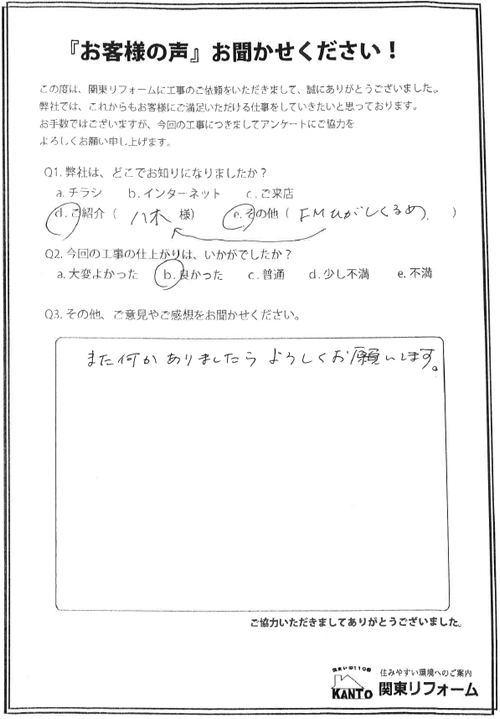 『お客様の声』お聞かせください！
この度は、関東リフォームに工事のご依頼をいただきまして、誠にありがとうございました。
弊社では、これからもお客様にご満足いただける仕事をしていきたいと思っております。
お手数ではございますが、今回の工事につきましてアンケートにご協力を
よろしくお願い申し上げます。
Q1. 弊社は、どこでお知りになりましたか？
a. チラシ　b. インターネット　c. ご来店
d. ご紹介（　八木　様）　e. その他（　FMひがしくるめ　）
Q2. 今回の工事の仕上がりは、いかがでしたか？
a. 大変よかった　b. 良かった　c. 普通　d. 少し不満　e. 不満
Q3. その他、ご意見やご感想をお聞かせください。
また何かありましたらよろしくお願いします。
ご協力いただきましてありがとうございました。
住まいの110番
KANTO
住みやすい環境へのご案内
関東リフォーム